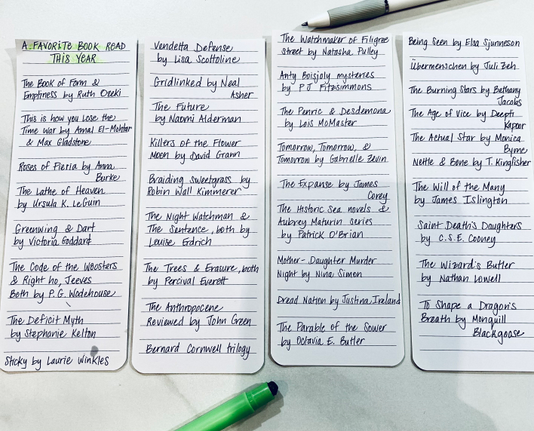 A FAVORITE BOOK READ
THIS YEAR
The Book of Form &
Emptiness by Ruth Ozeki
This is how you Lose the
Time War by Amal El-Mohtar
& Max Gladstone
Roses of Pieria by Anna
Burke
The Lathe of Heaven
by Ursula K. LeGuin
Greenwing & Dart
by Victoria Goddard
The Code of the Woosters
& Right ho, Jeeves
Both by P.G. Wodehouse
The Deficit Myth
by Stephanie Kelton
Sticky by Laurie Winkles
Vendetta Defense
by Lisa Scottoline
Gridlinked by Neal
Asher
The Future
by Naomi Alderman
Killers of the Flower
Moon by David Grann
Braiding Sweetgrass by
Robin Wall Kimmerer
The Night Watchman &
The Sentence, both by
Louise Erdrich
The Trees & Erasure, both
by Percival Everett
The Anthropocene
Reviewed by John Green
Bernard Cornwell trilogy
The Watchmaker of Filigree
Street by Natasha Pulley
Anty Boisjoly mysteries
by PJ Fitzsimmons
The Penric & Desdemona
by Lois McMaster
Tomorrow, Tomorrow, &
Tomorrow by Gabrielle Zevin
The Expanse by James
Corey
The Historic Sea novels &
Aubrey Maturin series
by Patrick O'Brian
Mother-Daughter Murder
Night by Nina Simon
Dread Nation by Justina Ireland
The Parable of the Sower
by Octavia E. Butler
Being Seen by Elsa Sjunneson
Übermenschen by Juli Zeh
The Burning Stars by Bethany
Jacobs
The Age of Vice by Deepti
Kapoor
The Actual Star by Monica
Byrne
Nettle & Bone by T. Kingfisher
The Will of the Many
by James Islington
Saint Death's Daughters
by C.S.E. Cooney
The Wizard's Butler
by Nathan Lowell
To Shape a Dragon's
Breath by Moniquill
Blackgoose